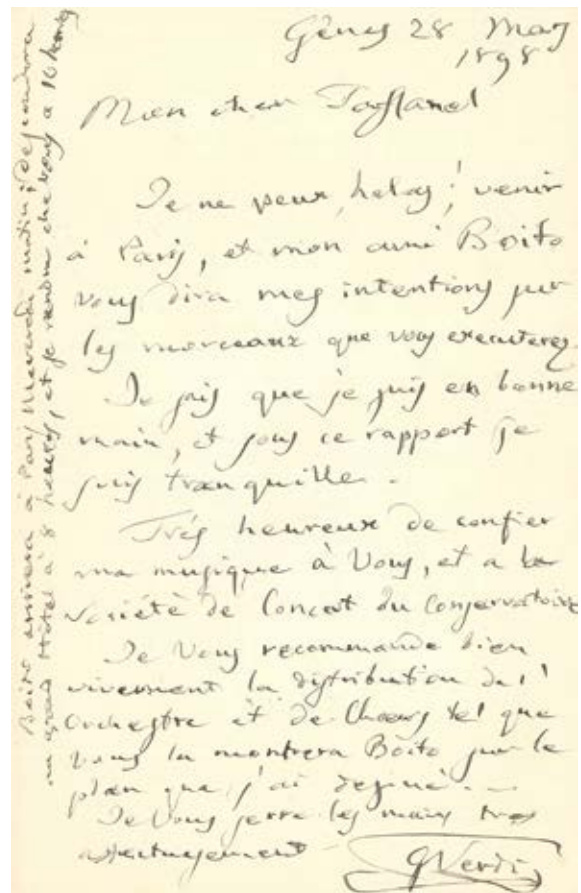 Gênes 28 Mars
1898
Mon cher Taffanel
Je ne peux, helas! venir
à Paris, et mon ami Boito
vous dira mes intentions sur
les morceaux que vous executerez.
Je sais que je suis en bonne
main, et sous ce rapport je
suis tranquille.
Trés heureux de confier
ma musique à Vous, et a la
Societé de Concert du Conservatoire
Je Vous recommande bien
vivement la distribution de l'
Orchestre et de Choeurs tel que
vous la montrera Boito sur le
plan que j'ai dessiné. —
Je Vous serre les mains tres
affectueusement
G Verdi
Boito arrivera à Paris Mercredi matin; descendra
au grand Hôtel à 8 heures, et se rendra chez Vous a 10 heures